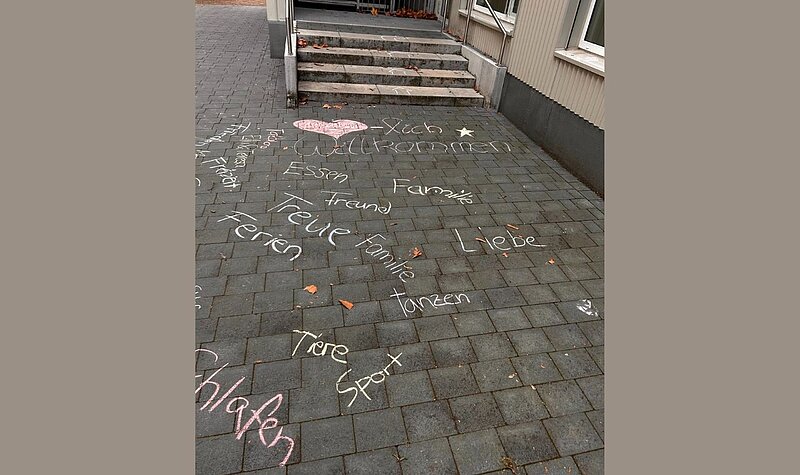 -lich
Willkommen
Essen
Familie
Freund
Treue
Ferien
Familie
Liebe
tanzen
Tiere
Sport
chlafen